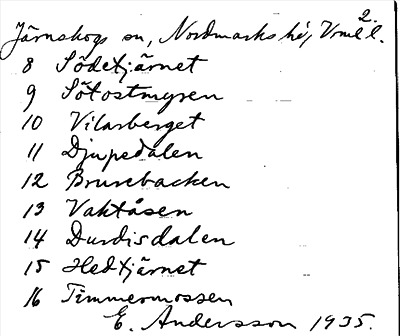 2.
Järnskogs sn, Nordmarks hd, Vrml l.
8 Södetjärnet
9 Sötostmyren
10 Vilarberget
11 Djupedalen
12 Brurebacken
13 Vaktåsen
14 Durdisdalen
15 Hedtjärnet
16 Timmermossen
E. Andersson 1935.